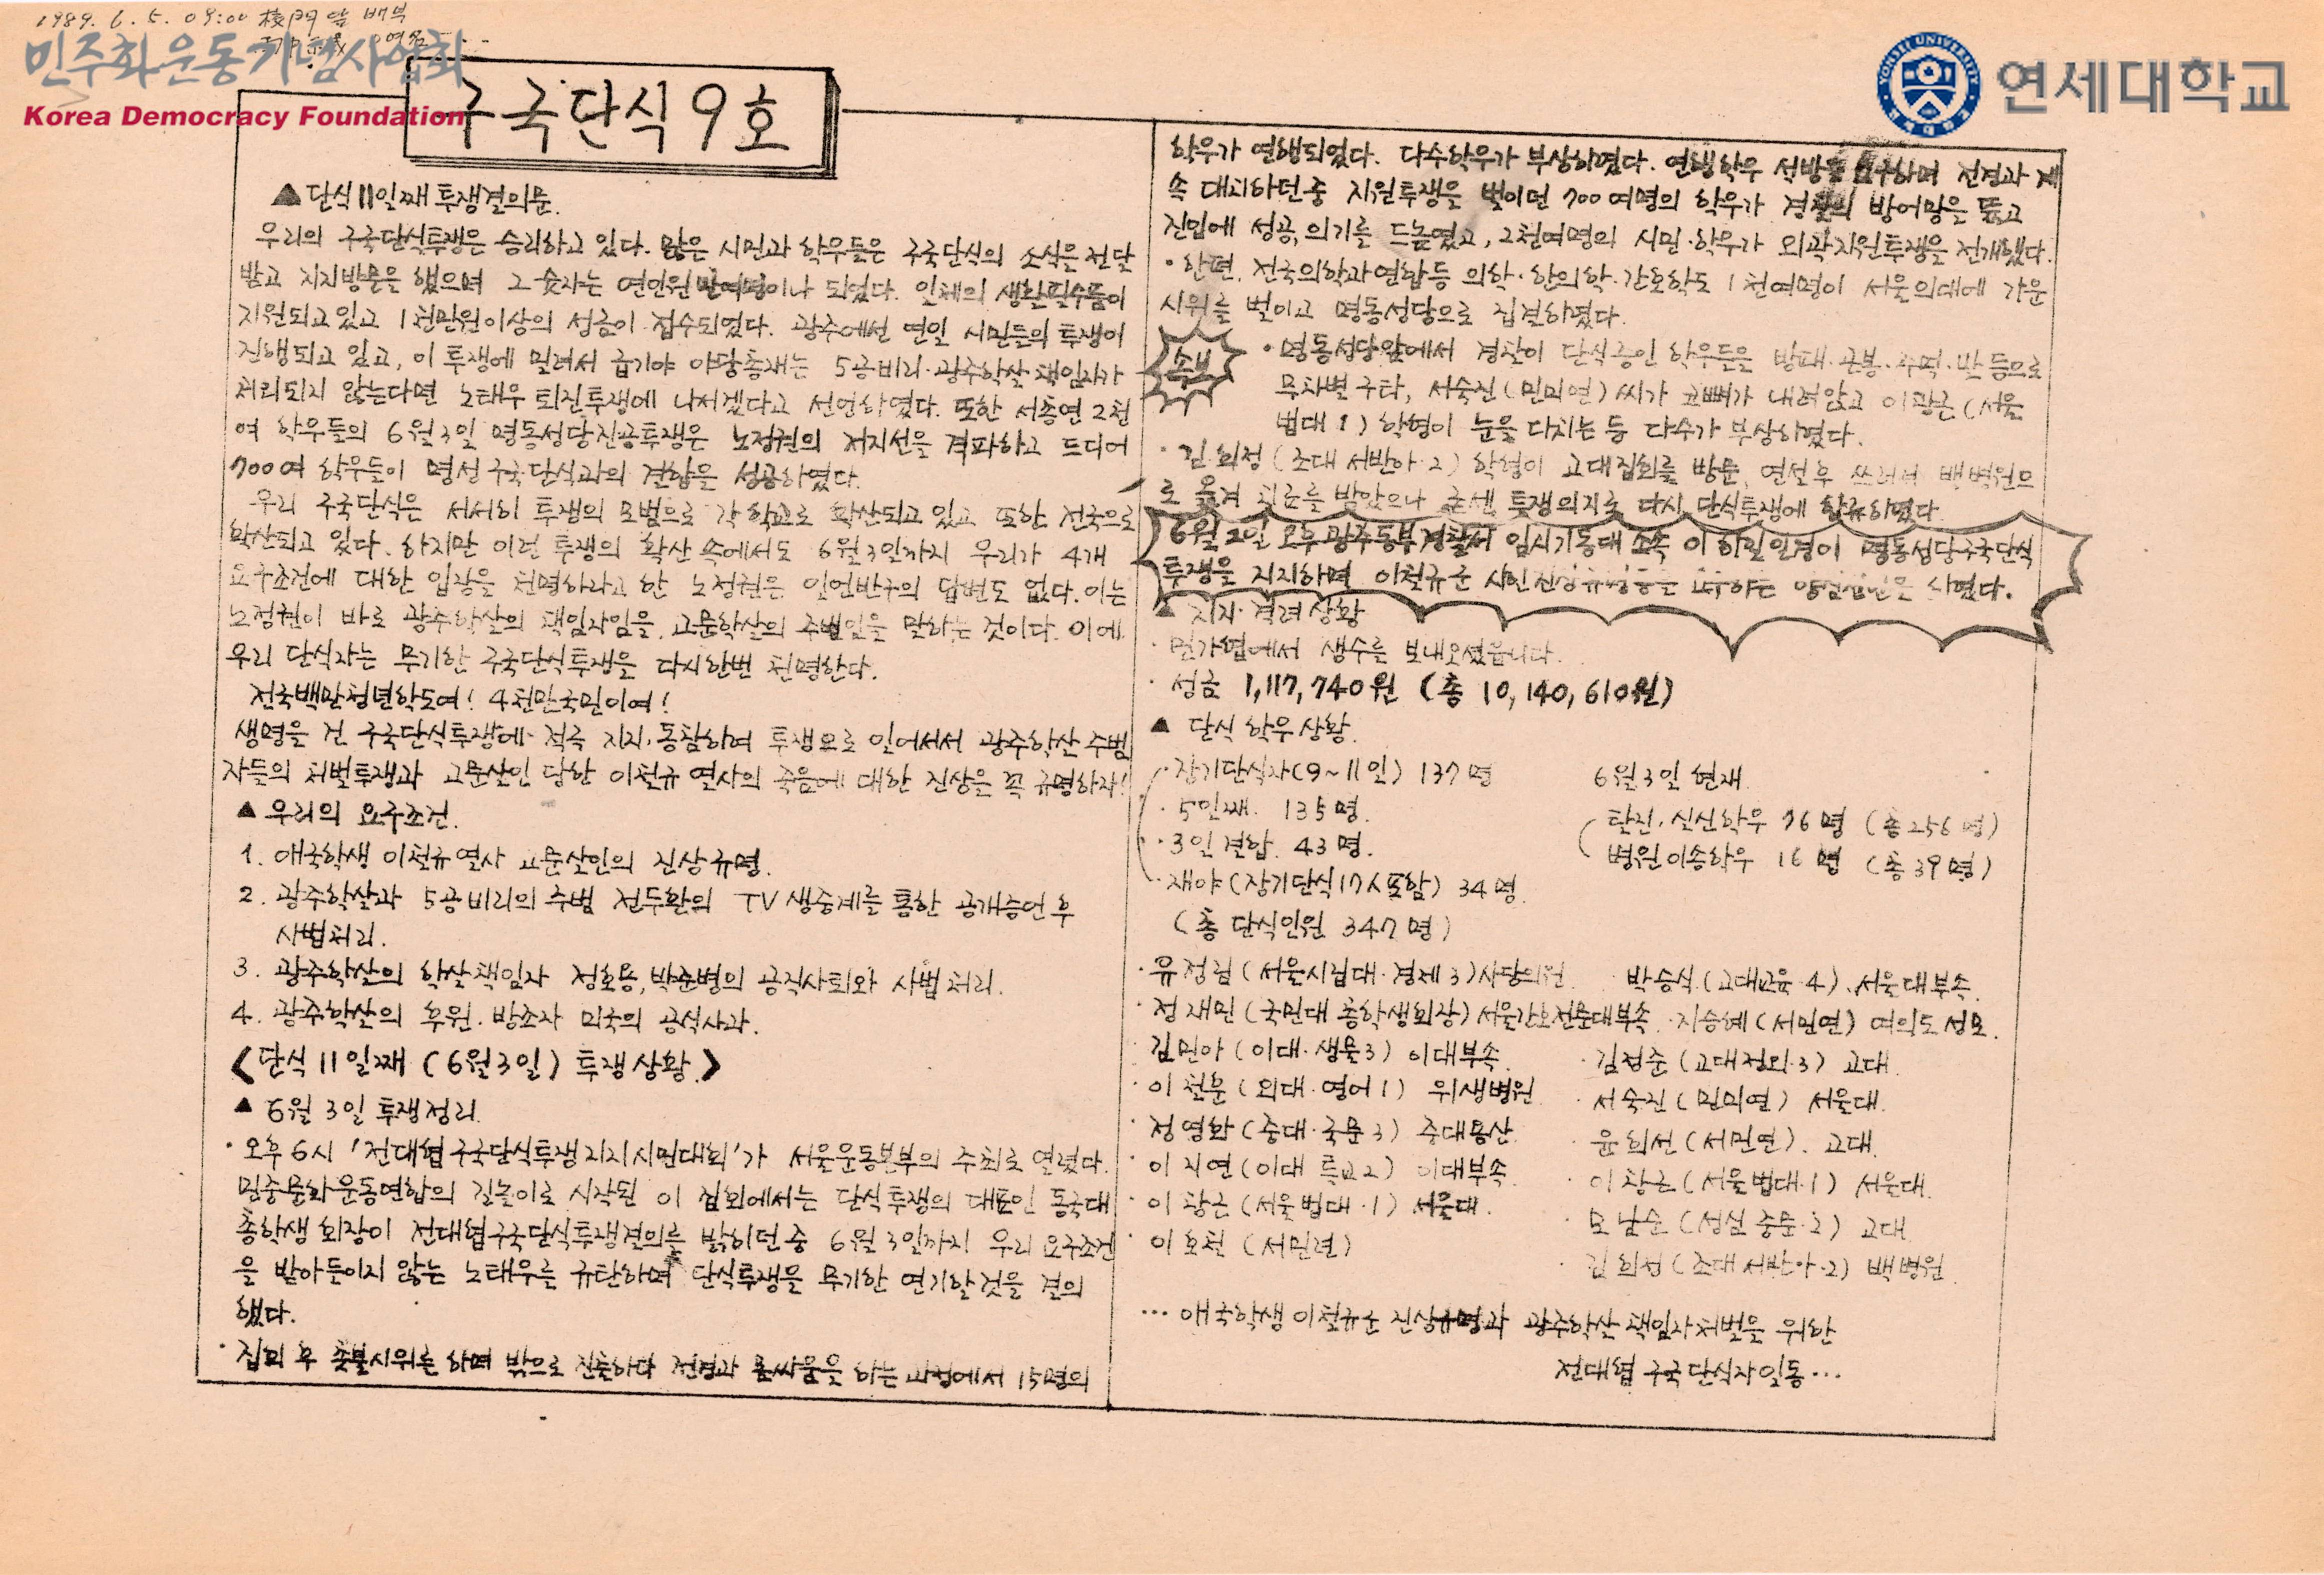 1989. 6. 5. 09:00 校門 앞 배부
민주화운동기념사업회
Korea Democracy Foundation
연세대학교
구국단식 9호
▲단식 11일째 투쟁결의문.
우리의 구국단식투쟁은 승리하고 있다. 많은 시민과 학우들은 구국단식의 소식을 전달
받고 지지방문을 했으며 그 숫자는 연인원 만여명이나 되었다. 일체의 생활필수품이
지원되고 있고 1천만원이상의 성금이 접수되었다. 광주에선 연일 시민들의 투쟁이
진행되고 있고, 이 투쟁에 밀려서 급기야 야당총재는 5공비리·광주학살 책임자가
처리되지 않는다면 노태우 퇴진투쟁에 나서겠다고 선언하였다. 또한 서총연 2천
여 학우들의 6월3일 명동성당진공투쟁은 노정권의 저지선을 격파하고 드디어
700여 학우들이 명성 구국단식과의 결합을 성공하였다.
우리 구국단식은 서서히 투쟁의 모범으로 각 학교로 확산되고 있고 또한 전국으로
확산되고 있다. 하지만 이런 투쟁의 확산 속에서도 6월3일까지 우리가 4개
요구조건에 대한 입장을 천명하라고 한 노정권은 일언반구의 답변도 없다. 이는
노정권이 바로 광주학살의 책임자임을, 고문학살의 주범임을 말하는 것이다. 이에
우리 단식자는 무기한 구국단식투쟁을 다시한번 천명한다.
전국백만청년학도여! 4천만국민이여!
생명을 건 구국단식투쟁에 적극 지지·동참하여 투쟁으로 일어서서 광주학살 주범
자들의 처벌투쟁과 고문살인 당한 이철규 열사의 죽음에 대한 진상을 꼭 규명하자!
▲우리의 요구조건.
1. 애국학생 이철규열사 고문살인의 진상규명.
2. 광주학살과 5공비리의 주범 전두환의 TV생중계를 통한 공개증언 후
사법처리.
3. 광주학살의 학살책임자 정호용, 박준병의 공직사퇴와 사법처리.
4. 광주학살의 후원·방조자 미국의 공식사과.
<단식 11일째 (6월3일) 투쟁상황>
▲ 6월 3일 투쟁정리.
· 오후 6시 '전대협구국단식투쟁지지시민대회'가 서울운동본부의 주최로 열렸다.
민중문화운동연합의 길놀이로 시작된 이 집회에서는 단식투쟁의 대표인 동국대
총학생회장이 전대협구국단식투쟁결의를 밝히던 중 6월3일까지 우리 요구조건
을 받아들이지 않는 노태우를 규탄하며 단식투쟁을 무기한 연기할 것을 결의
했다.
· 집회 후 촛불시위를 하며 밖으로 진출하다 전경과 몸싸움을 하는 과정에서 15명의
학우가 연행되었다. 다수학우가 부상하였다. 연행학우 석방을 요구하며 전경과 계
속 대치하던중 지원투쟁을 벌이던 700여명의 학우가 경찰의 방어망을 뚫고
진입에 성공, 의기를 드높였고, 2천여명의 시민·학우가 외곽지원투쟁을 전개했다.
· 한편, 전국의학과연합등 의학·한의학·간호학도 1천여명이 서울의대에 가운
시위를 벌이고 명동성당으로 집결하였다.
속보
· 명동성당앞에서 경찰이 단식중인 학우들을 방패·곤봉·주먹·발 등으로
무차별 구타, 서숙진(민미연)씨가 코뼈가 내려앉고 이광근(서울
법대 1) 학형이 눈을 다치는 등 다수가 부상하였다.
· 김희정 (조대 서반아·2) 학형이 고대집회를 방문, 연설후 쓰러져 백병원으
로 옮겨 치료를 받았으나 굳센 투쟁의지로 다시 단식투쟁에 합류하였다.
6월 2일 오후 광주동부경찰서 임시기동대 소속 이하일일경이 명동성당구국단식
투쟁을 지지하며 이철규군 사인진상규명등을 요구하는 양심선언을 하였다.
▲ 지지·격려상황
· 민가협에서 생수를 보내오셨읍니다.
· 성금 1,117,740원 (총 10,140,610원)
▲ 단식 학우 상황.
· 장기단식자(9~11일) 137명
· 5일째. 135명.
· 3일 결합. 43명.
· 재야(장기단식17人포함) 34명.
(총 단식인원 347명)
6월3일 현재
탈진·실신학우 76명 (총256명)
병원이송학우 16명 (총39명)
· 유정림(서울시립대·경제3)사당의원 · 박승식(고대교육·4). 서울대부속.
· 정재민(국민대 총학생회장)서울간호전문대부속 · 지승혜(서민연) 여의도성모.
김민아(이대·생물3) 이대부속. · 김정준(고대정외·3) 고대.
· 이천운(외대·영어1) 위생병원 · 서숙진(민미연) 서울대.
· 정영화(중대·국문3) 중대용산. · 윤희선(서민연). 고대.
· 이지연(이대 특교2) 이대부속. · 이창근(서울법대·1) 서울대.
· 이창근(서울법대·1) 서울대. · 모남순(성심 중문·2) 고대.
· 이호철 (서민련)
· 김희정(조대서반아·2) 백병원.
… 애국학생 이철규군 진상규명과 광주학살 책임자처벌을 위한
전대협 구국단식자일동…